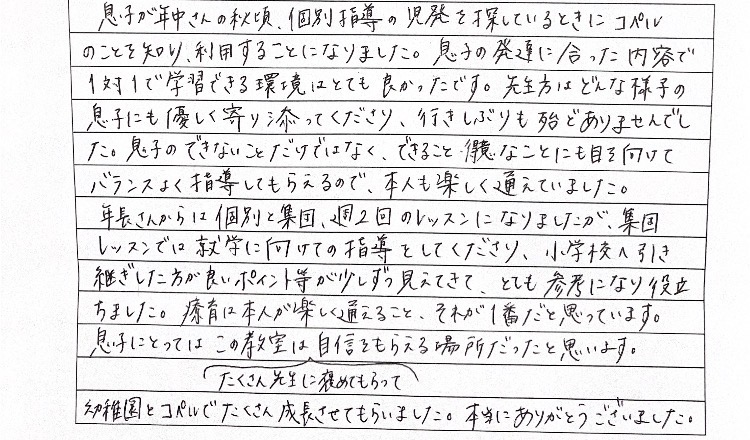 息子が年中さんの秋頃、個別指導の児発を探しているときにコペル
のことを知り、利用することになりました。息子の発達に合った内容で
1対1で学習できる環境はとても良かったです。先生方はどんな様子の
息子にも優しく寄り添ってくださり、行きしぶりも殆どありませんでし
た。息子のできないことだけではなく、できること・得意なことにも目を向けて
バランスよく指導してもらえるので、本人も楽しく通えていました。
年長さんからは個別と集団、週2回のレッスンになりましたが、集団
レッスンでは就学に向けての指導をしてくださり、小学校へ引き
継ぎした方が良いポイント等が少しずつ見えてきて、とても参考になり役立
ちました。療育は本人が楽しく通えること、それが1番だと思っています。
息子にとってはこの教室は自信をもらえる場所だったと思います。
たくさん先生に褒めてもらって
幼稚園とコペルでたくさん成長させてもらいました。本当にありがとうございました。